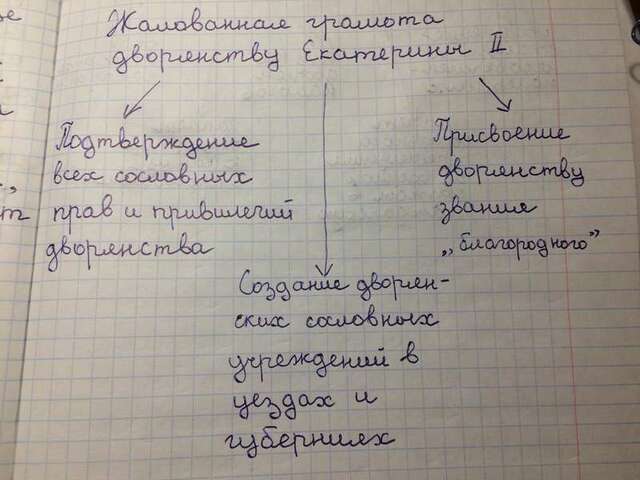 Жалованная грамота
дворянству Екатерины II
Подтверждение
всех сословных
прав и привилегий
дворянства
Создание дворян-
ских сословных
учреждений в
уездах и
губерниях
Присвоение
дворянству
звания
„благородного”